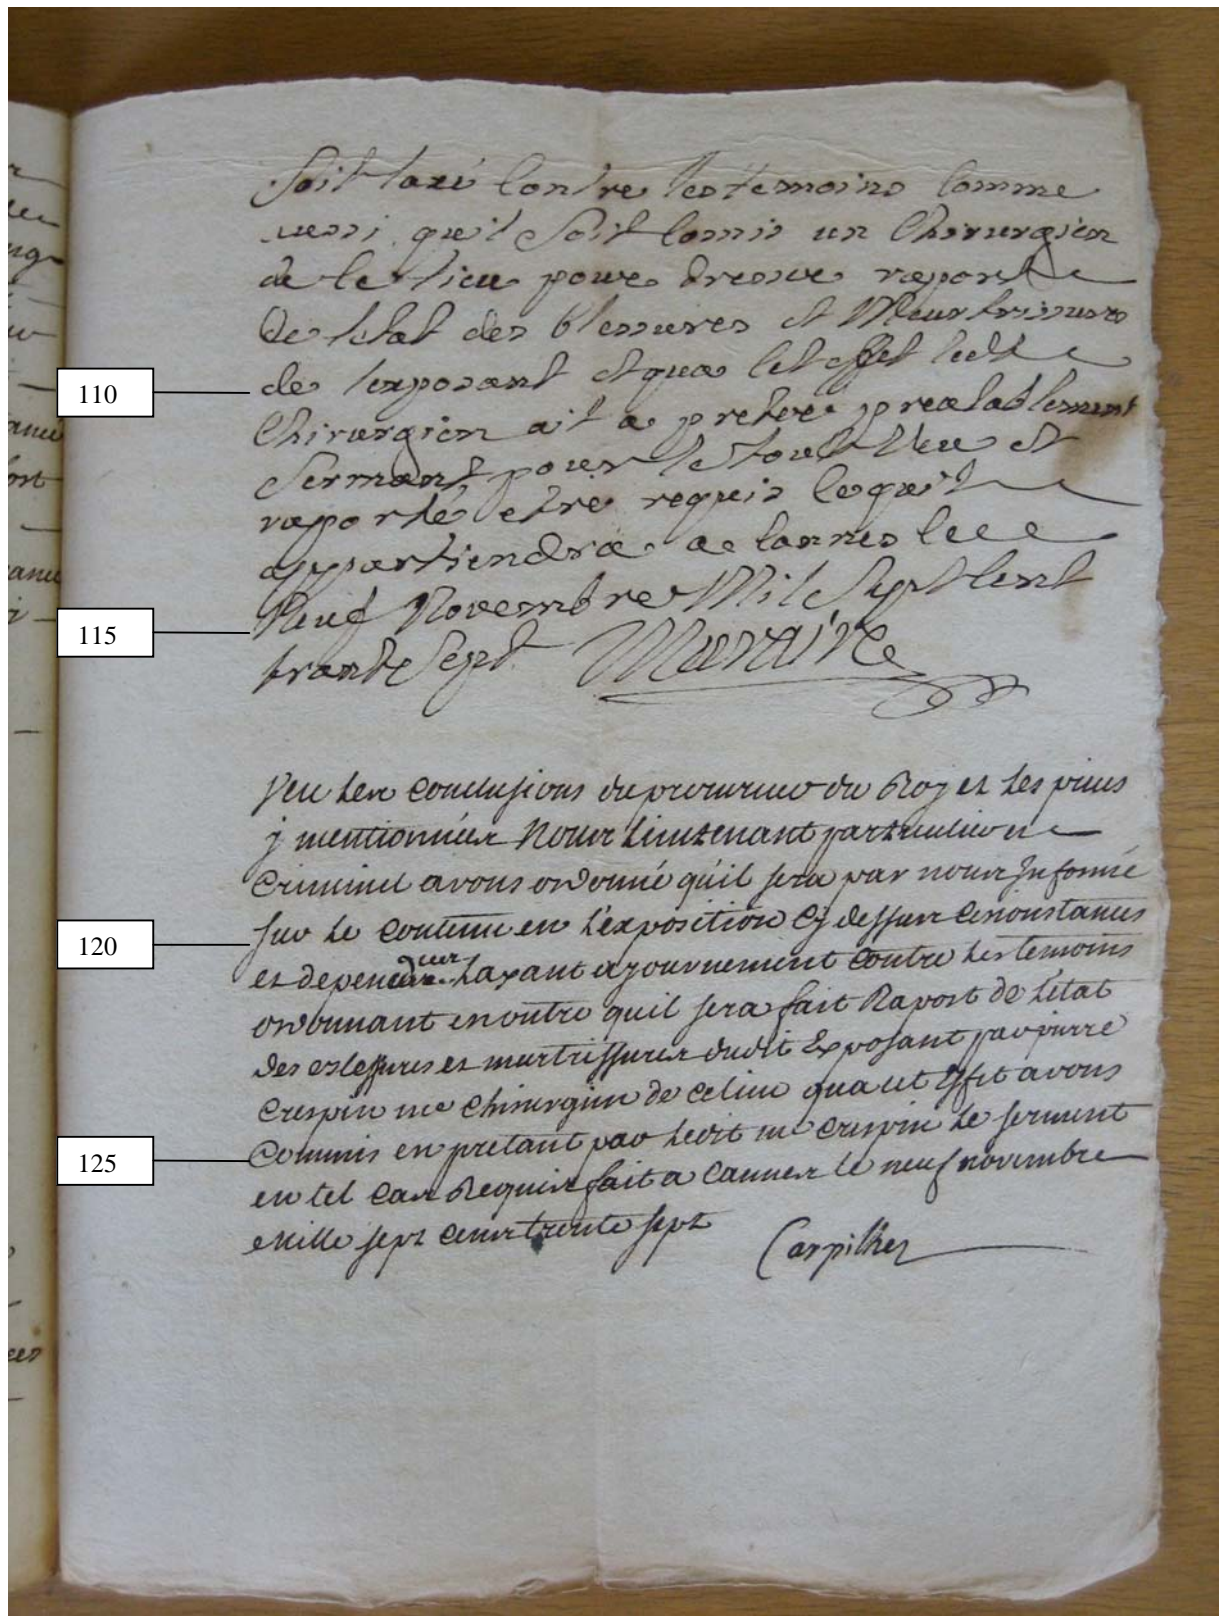 soit laxé contre les temoins comme
aussi quil soit comis un chirurgien
de ce lieu pour dresser raport
de letat des blessures et meurtrissures
110
de lexposant et qua cet effet ledit
chirurgien ait a preter prealablement
serment pour le tout veu et
raporté etre requis ce quil
appartiendra a Cannes le
115
neuf novembre mil sept cent
trante sept Maraire
Veu les conclusions du procureur du Roy et les pieces
y mentionnées Nous Lieutenant particulier
criminel avons ordonné qu'il sera par nous Informé
120
sur le contenu en l'exposition cy dessus circonstances
et dependances laxant ajournement contre les temoins
ordonnant en outre quil sera fait Raport de l'état
des blessures et murtrissures dudit Exposant par pierre
Crespin me chirurgien de ce lieu qua cet Effet avons
125
Commis en pretant par ledit me crespin le serment
en tel cas Requis fait a Cannes le neuf novembre
mille sept cens trente sept Carpilhet